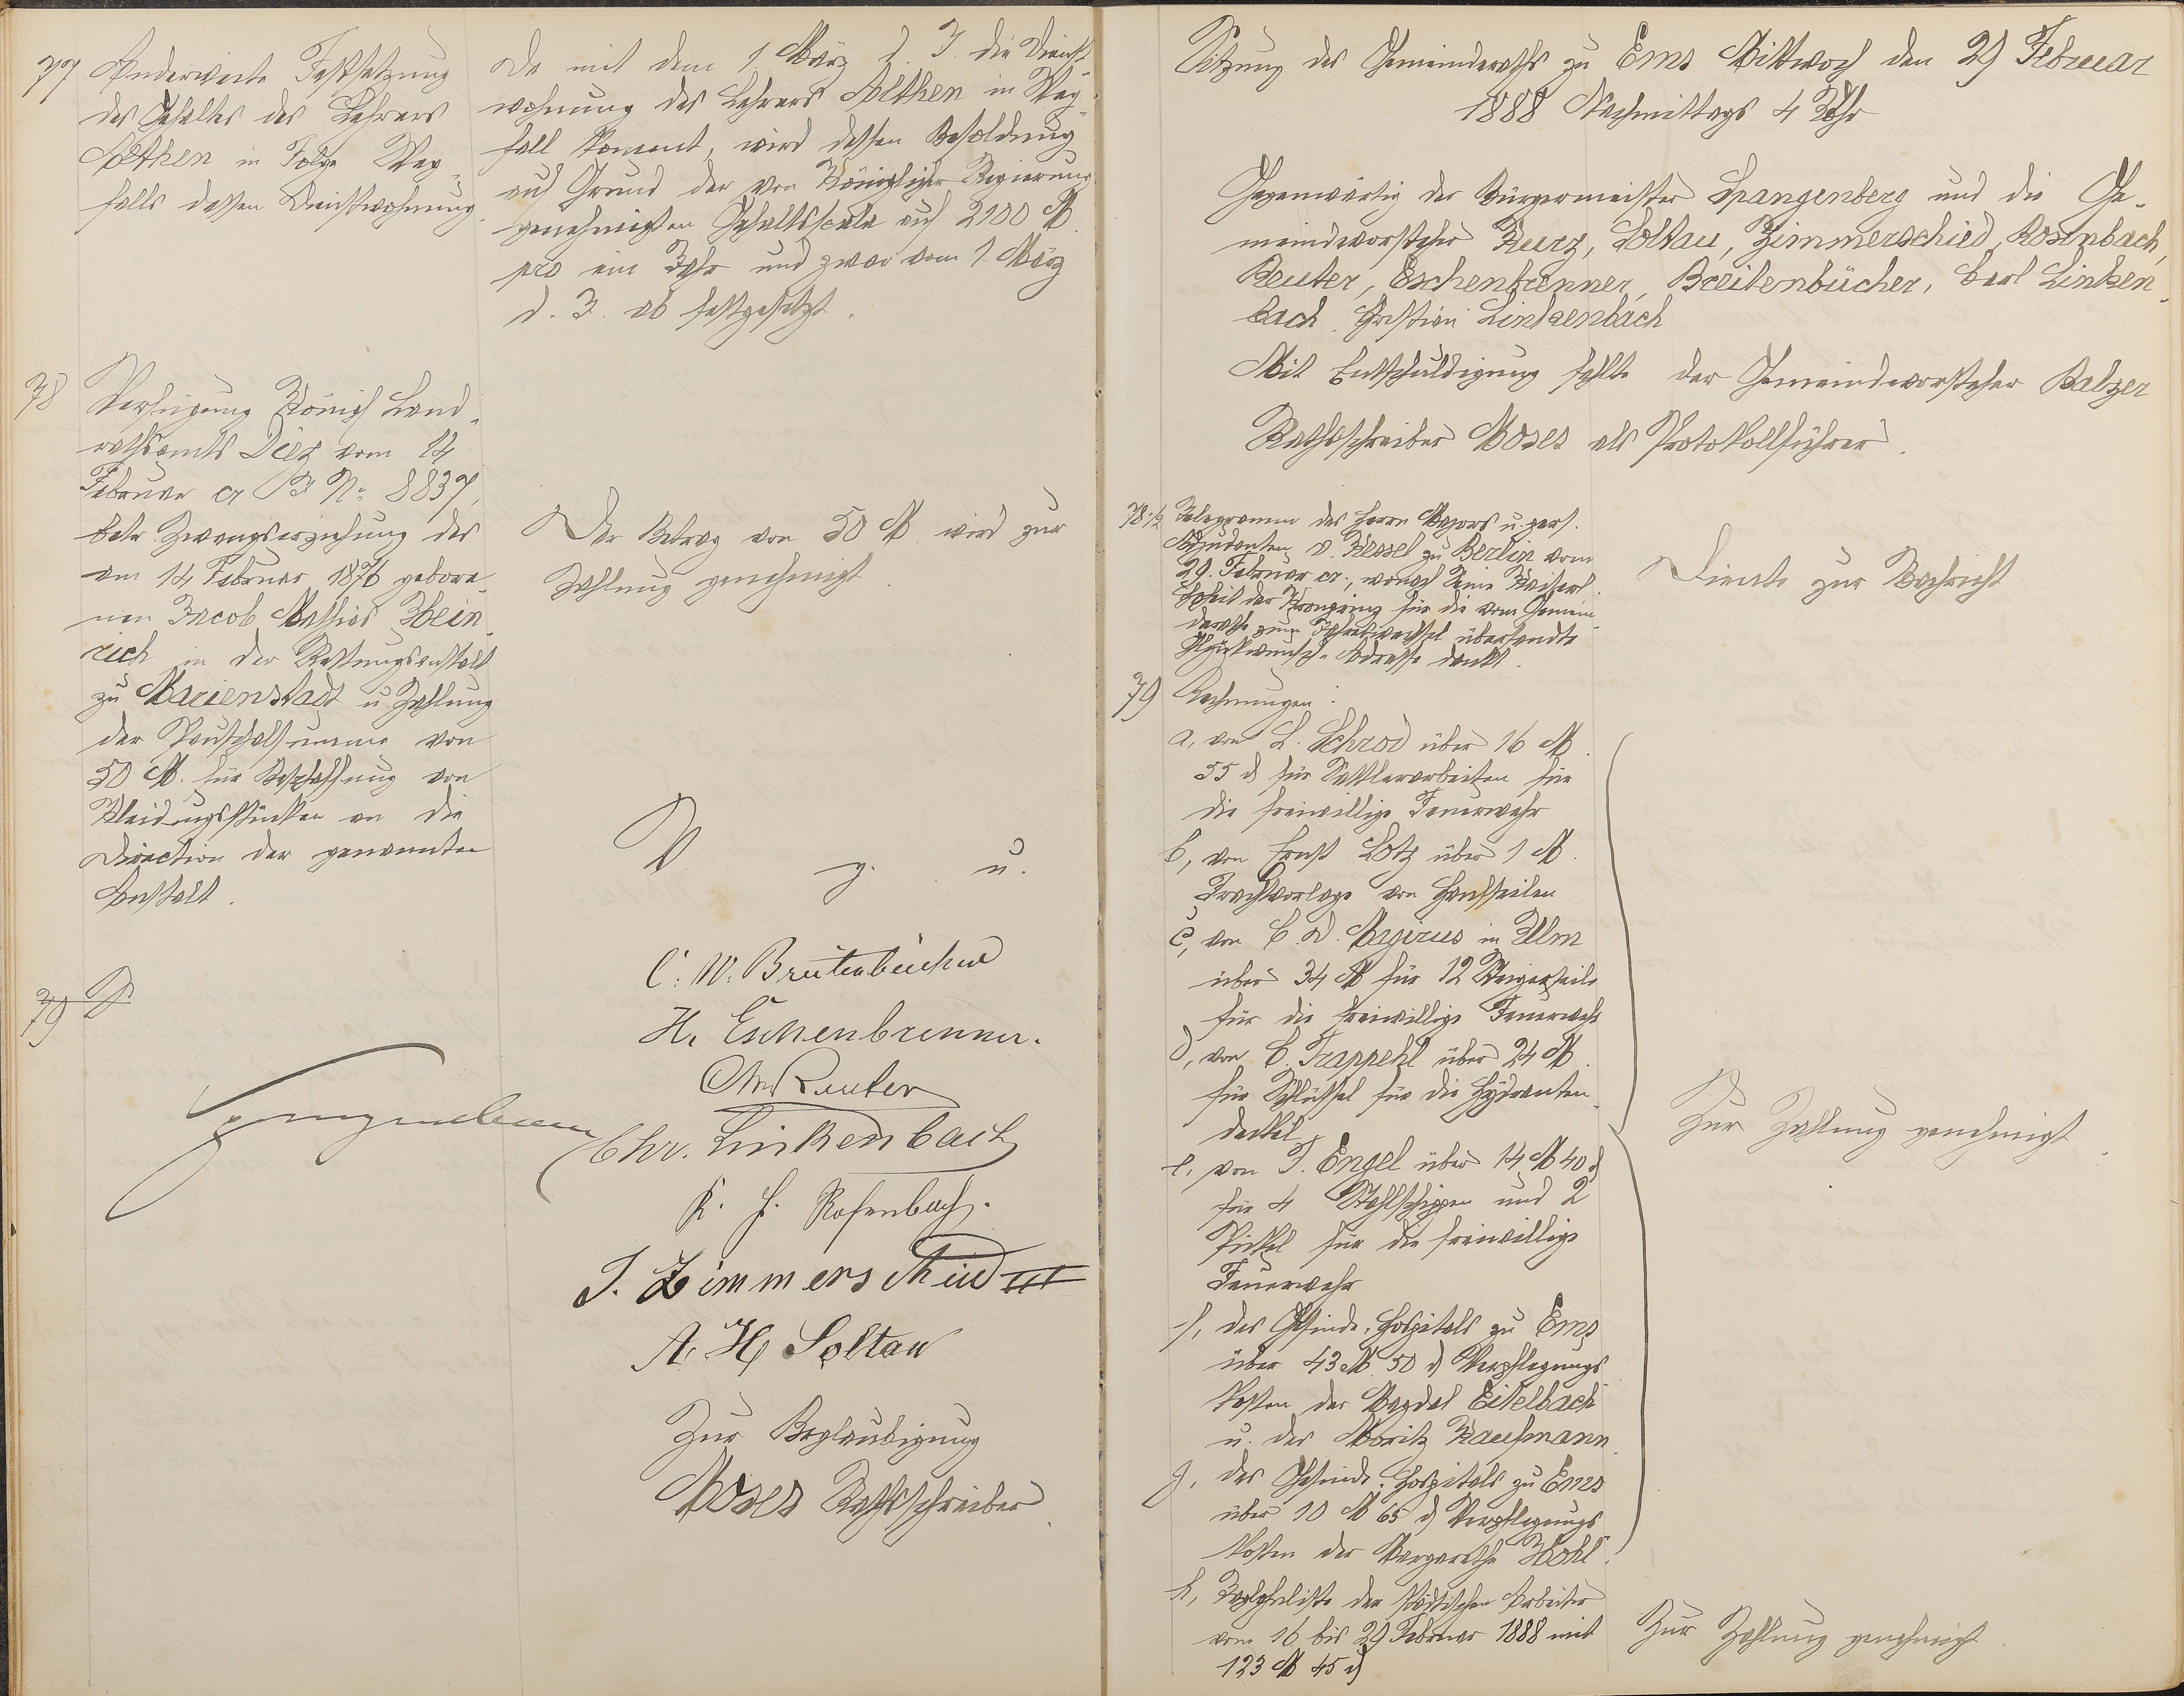 77 Anderweite Festsetzung
des Gehaltes des Lehrers
Althen in Folge Weg-
falls dessen Dienstwohnung.
Da mit dem 1 März d. J. die Dienst-
wohnung des Lehrers Althen in Weg-
fall kommt, wird dessen Besoldung
auf Grund der von Königlicher Regierung
genehmigten Gehaltsscala auf 2100 M.
pro ein Jahr und zwar vom 1. März
d. J. ab festgesetzt.
78 Verfügung Königl Land-
rathsamts Diez vom 14
Februar cr J No 8837,
betr. Zwangserziehung des
am 14 Februar 1876 gebore-
nen Jacob Mathias Hein-
rich in der Rettungsanstalt
zu Marienstadt u Zahlung
der Pauschalsumme von
50 M. für Beschaffung von
Kleidungsstücken an die
Direction der genannten
Anstalt.
Der Betrag von 50 M wird zur
Zahlung genehmigt.
79
V. g. u.
C. W. Breitenbücher
H. Eschenbrenner.
Chr. Reuter
Chr. Linkenbach
K. H. Rosenbach.
J. Zimmerschied III
A. H Soltau
Spangenberg
Zur Beglaubigung
Moses Rathsschreiber
Sitzung des Gemeinderaths zu Ems Mittwoch den 29 Februar
1888 Nachmittags 4 Uhr
Gegenwärtig der Bürgermeister Spangenberg und die Ge-
meindevorsteher Kurz, Soltau, Zimmerschied, Rosenbach,
Reuter, Eschenbrenner, Breitenbücher, Carl Linken-
bach, Christian Linkenbach
Mit Entschuldigung fehlte der Gemeindevorsteher Balzer
Rathsschreiber Moses als Protokollführer.
78 1/2 Telegramm des Herrn Majors u. pers.
Adjudanten v. Kessel zu Berlin vom
29. Februar cr., wonach Seine Kaiserl.
Hoheit der Kronprinz für die vom Gemein-
derathe zum Jahreswechsel übersandte
Glückwunsch-Adresse dankt.
Diente zur Nachricht
79 Rechnungen:
a, von L. Schrod über 16 M.
55 d für Sattlerarbeiten für
die freiwillige Feuerwehr
b, von Ernst Lotz über 1 M.
Frachtvorlage von Hanfseilen
c, von C. D. Magirus in Ulm
über 34 M für 12 Steigerseile
für die freiwillige Feuerwehr
d, von C. Trappehl über 24 M.
für Schlüssel für die Hydranten-
deckel
e, von J. Engel über 14 M 40 d
für 4 Stahlschippen und 2
Pickel für die freiwillige
Feuerwehr
f, des Gesinde-Hospitals zu Ems
über 43 M. 50 d Verpflegungs-
kosten der Magdal Eitelbach
u. des Moritz Kaufmann.
g, des Gesinde-Hospitals zu Ems
über 10 M 65 d Verpflegungs-
kosten der Margarethe Hohl.
Zur Zahlung genehmigt.
h, der städtischen Arbeiter
vom 16 bis 29 Februar 1888 mit
123 M 45 d
Zur Zahlung genehmigt.